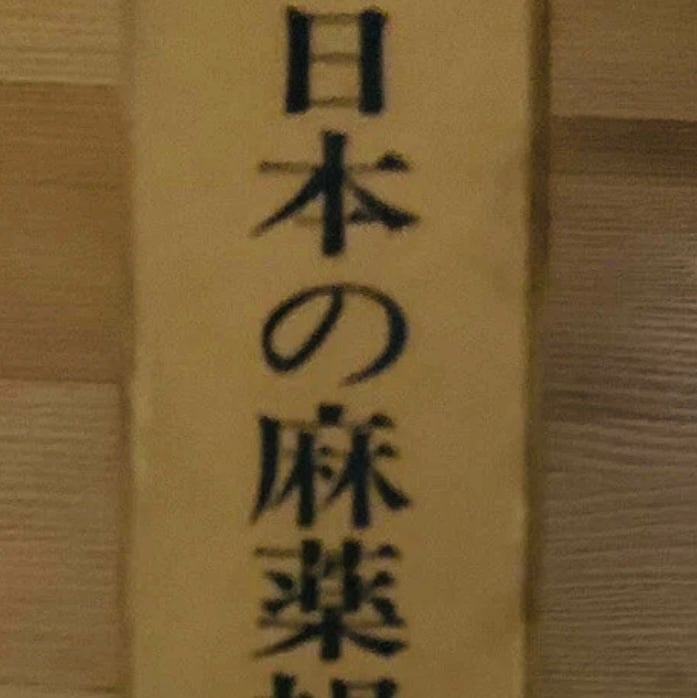 日本の麻薬